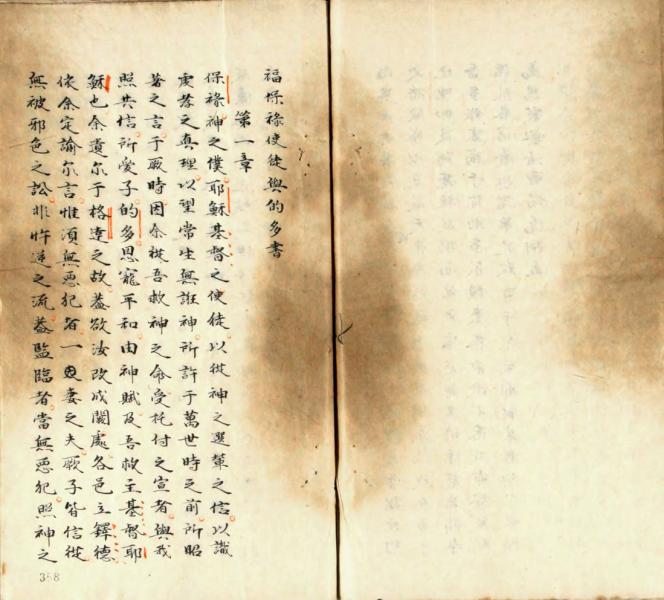 福保祿使徒與的多書
第一章
保祿神之僕耶穌基督之使徒以從神之選輩之信以識
虔孝之真理以望常生無誑神所許于萬世時之前所昭
著之言于厥時因余從吾救神之命受托付之宣者與我
照共信所愛子的多恩寵平和由神賦及吾救主基督耶
穌也余遺尔于格達之故葢欲汝改成闕處各邑立鐸德
依余定諭尔言惟須無惡犯者一妻之夫厥子皆信從
無被邪色之訟非忤逆之流葢監臨者當無惡犯照神之
358